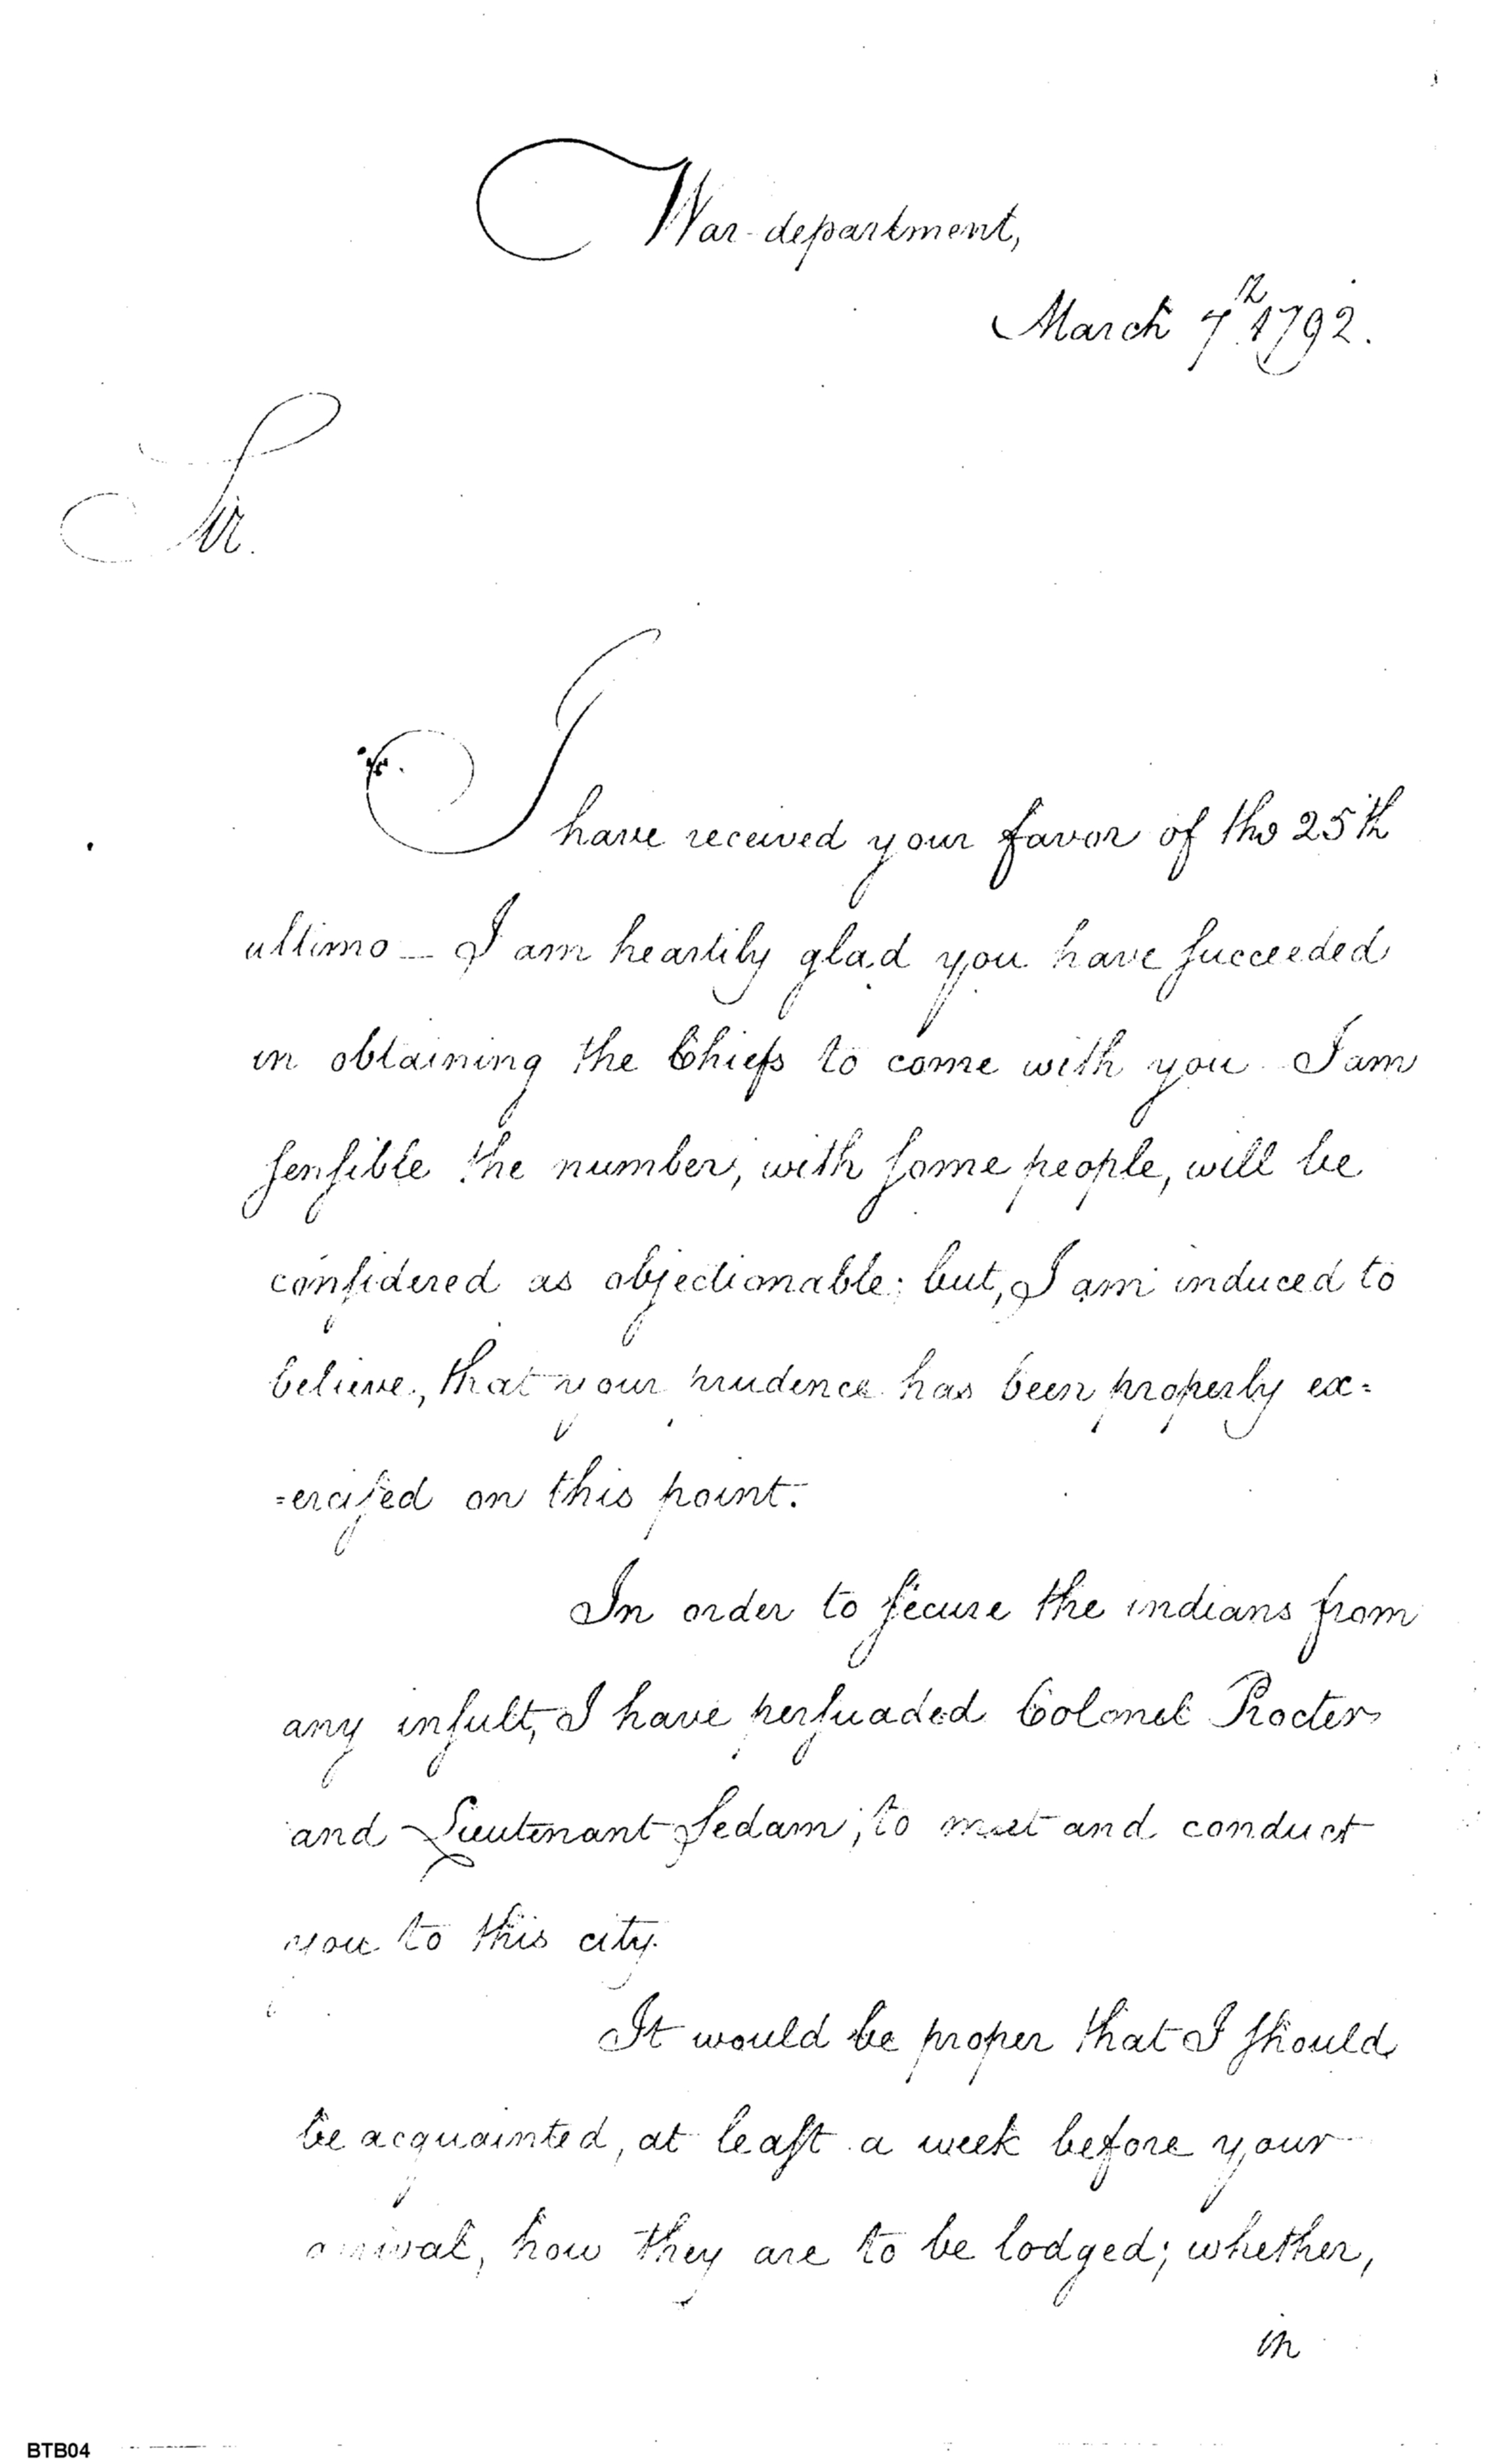 War-department,
March 7th 1792.
Sir.
I have received your favor of the 25th
ultimo — I am heartily glad you have ſucceeded
in obtaining the Chiefs to come with you. I am
ſenſible the number, with ſome people, will be
conſidered as objectionable; but, I am induced to
believe, that your prudence has been properly ex=
=erciſed on this point.
In order to ſecure the indians from
any inſult, I have perſuaded Colonel Procter
and Lieutenant Sedam, to meet and conduct
you to this city.
It would be proper that I ſhould
be acquainted, at leaſt a week before your
arrival, how they are to be lodged; whether,
in
BTB04